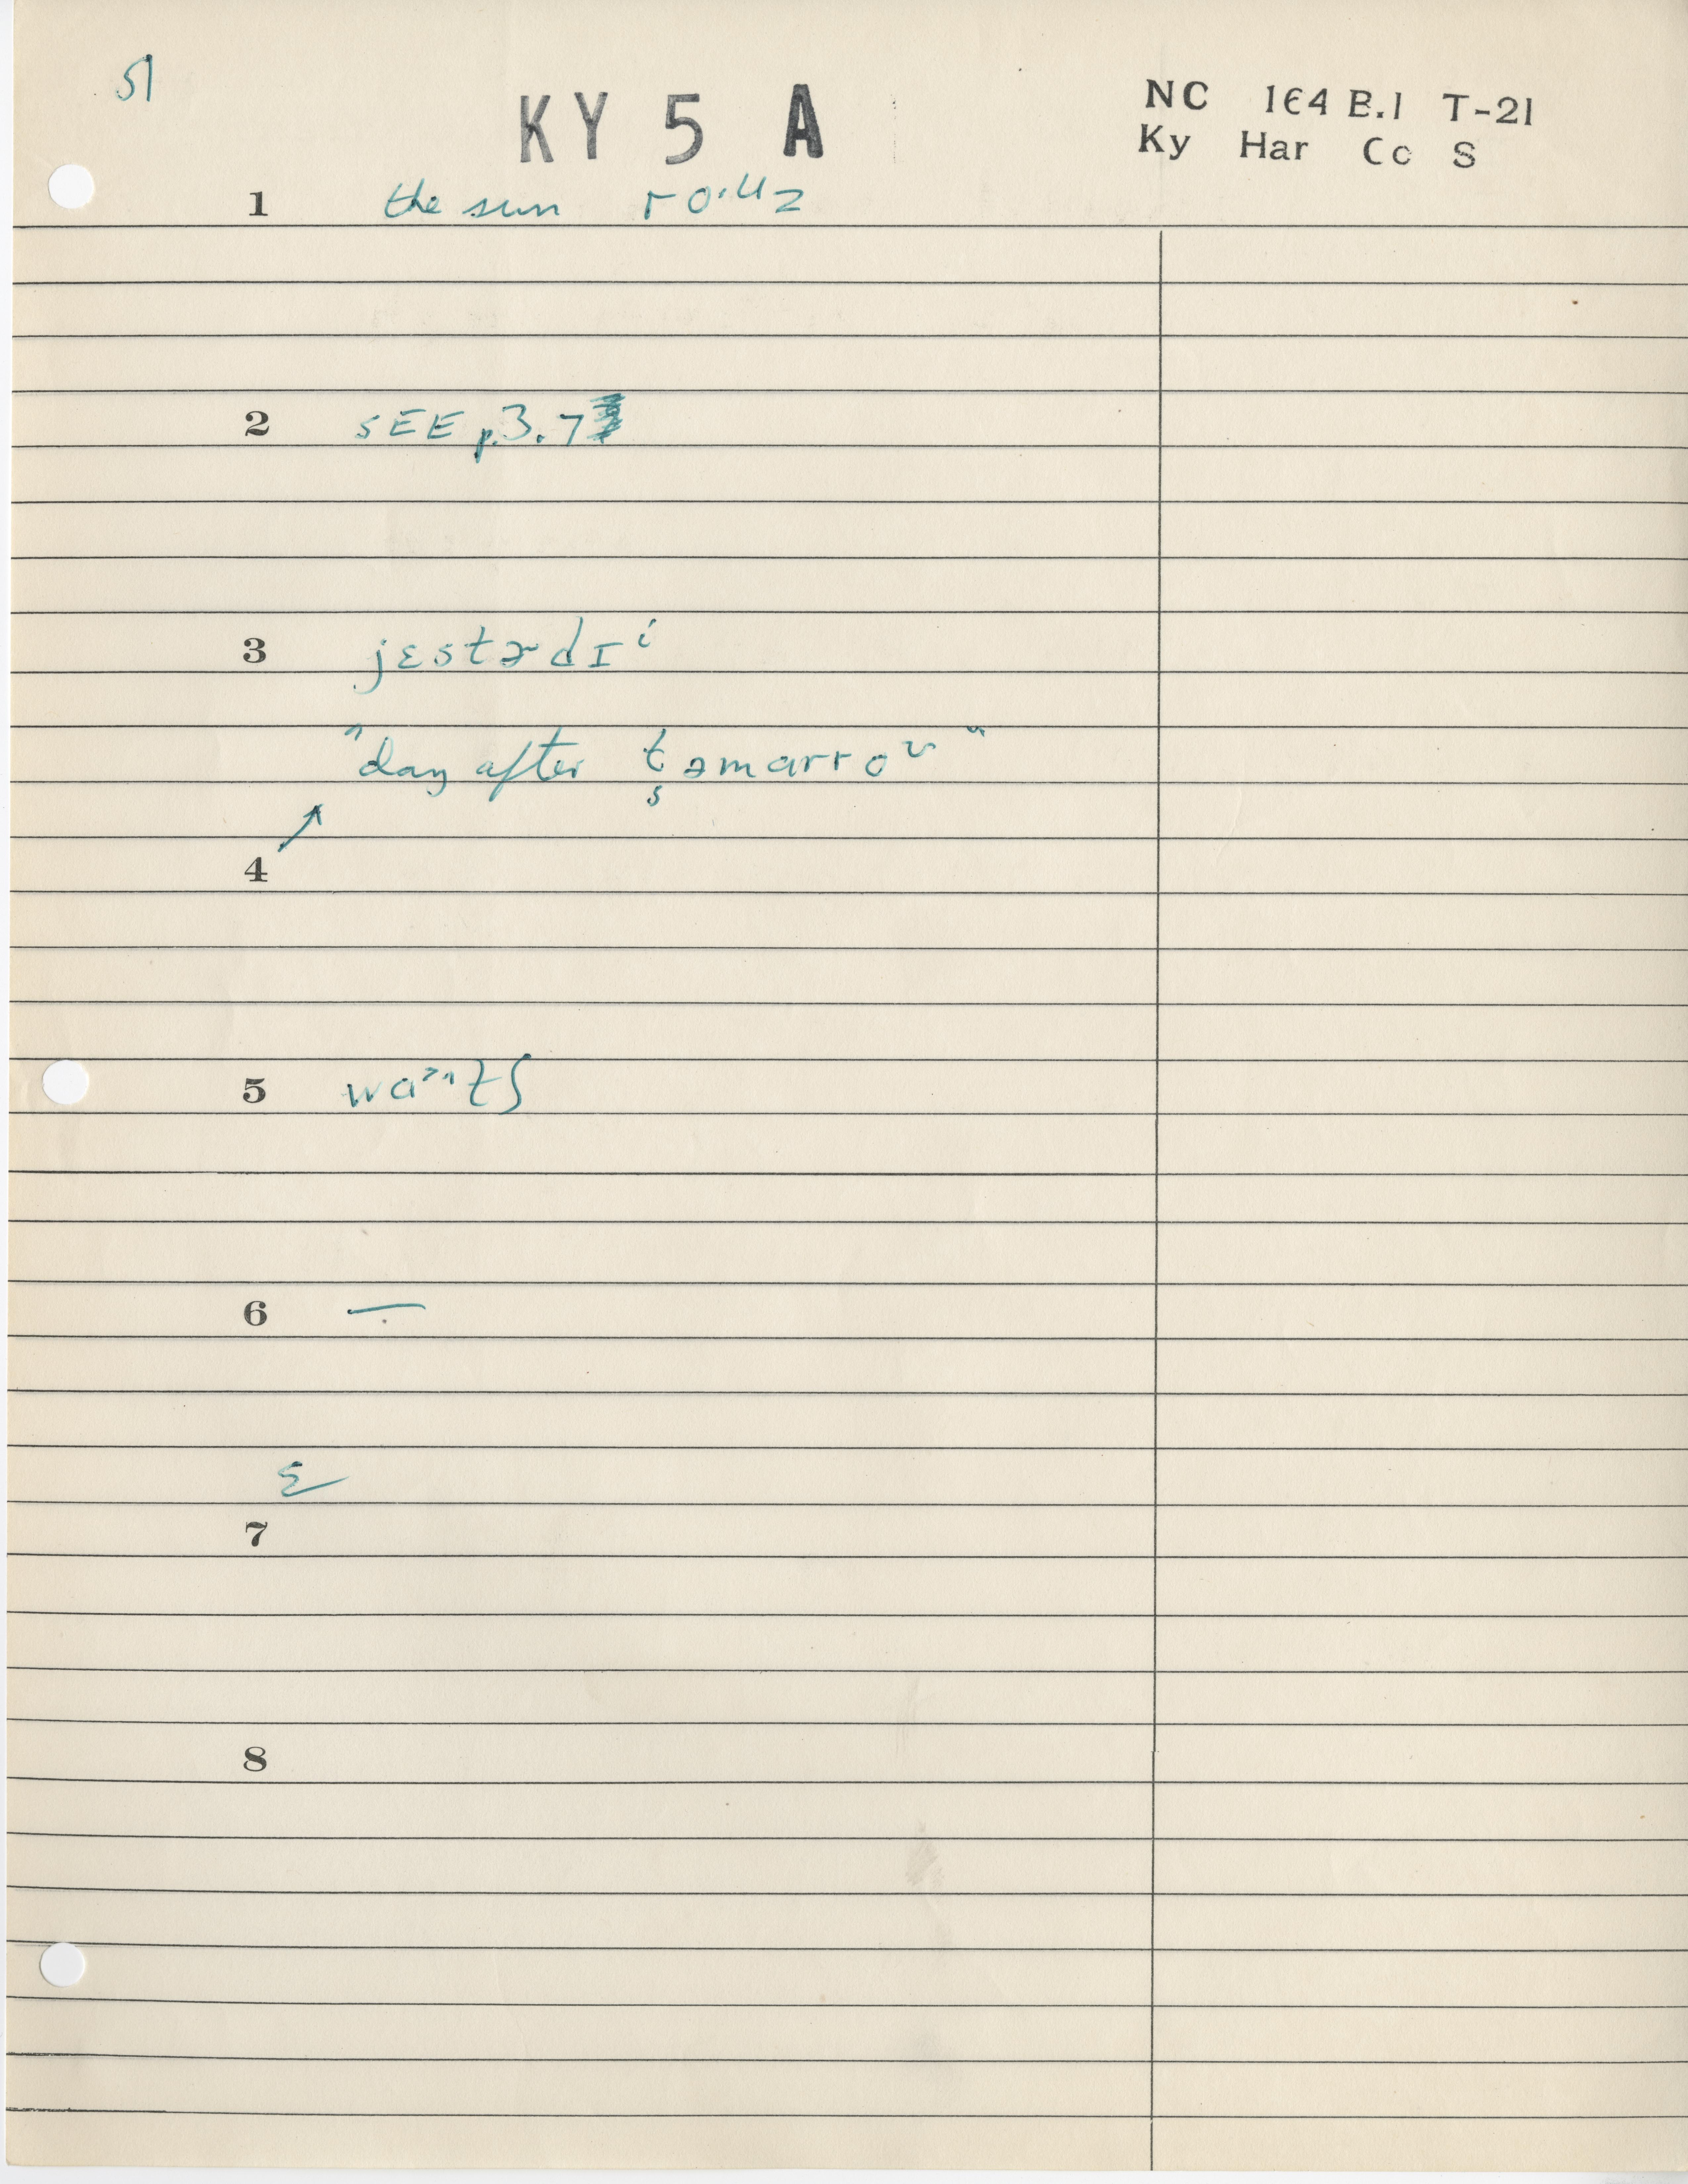 51
KY 5 A
NC 164 B.1 T-21
Ky Har Co S
1 the sun ro.uz
2 SEE p.3.7
3 jɛstɚdɪⁱ
"day after təmarroᶷ"
s
4
5
6 —
7
8